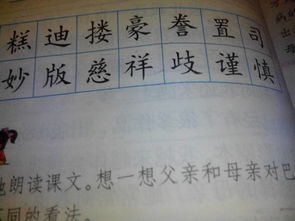 糕迪搂豪誊置司
妙版慈祥歧谨慎
地朗读课文。想一想父亲和母亲对巴
同的看法。